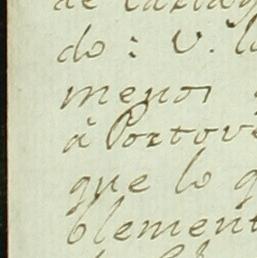 de
do: V. l
menos
à Portove
que lo q
blement